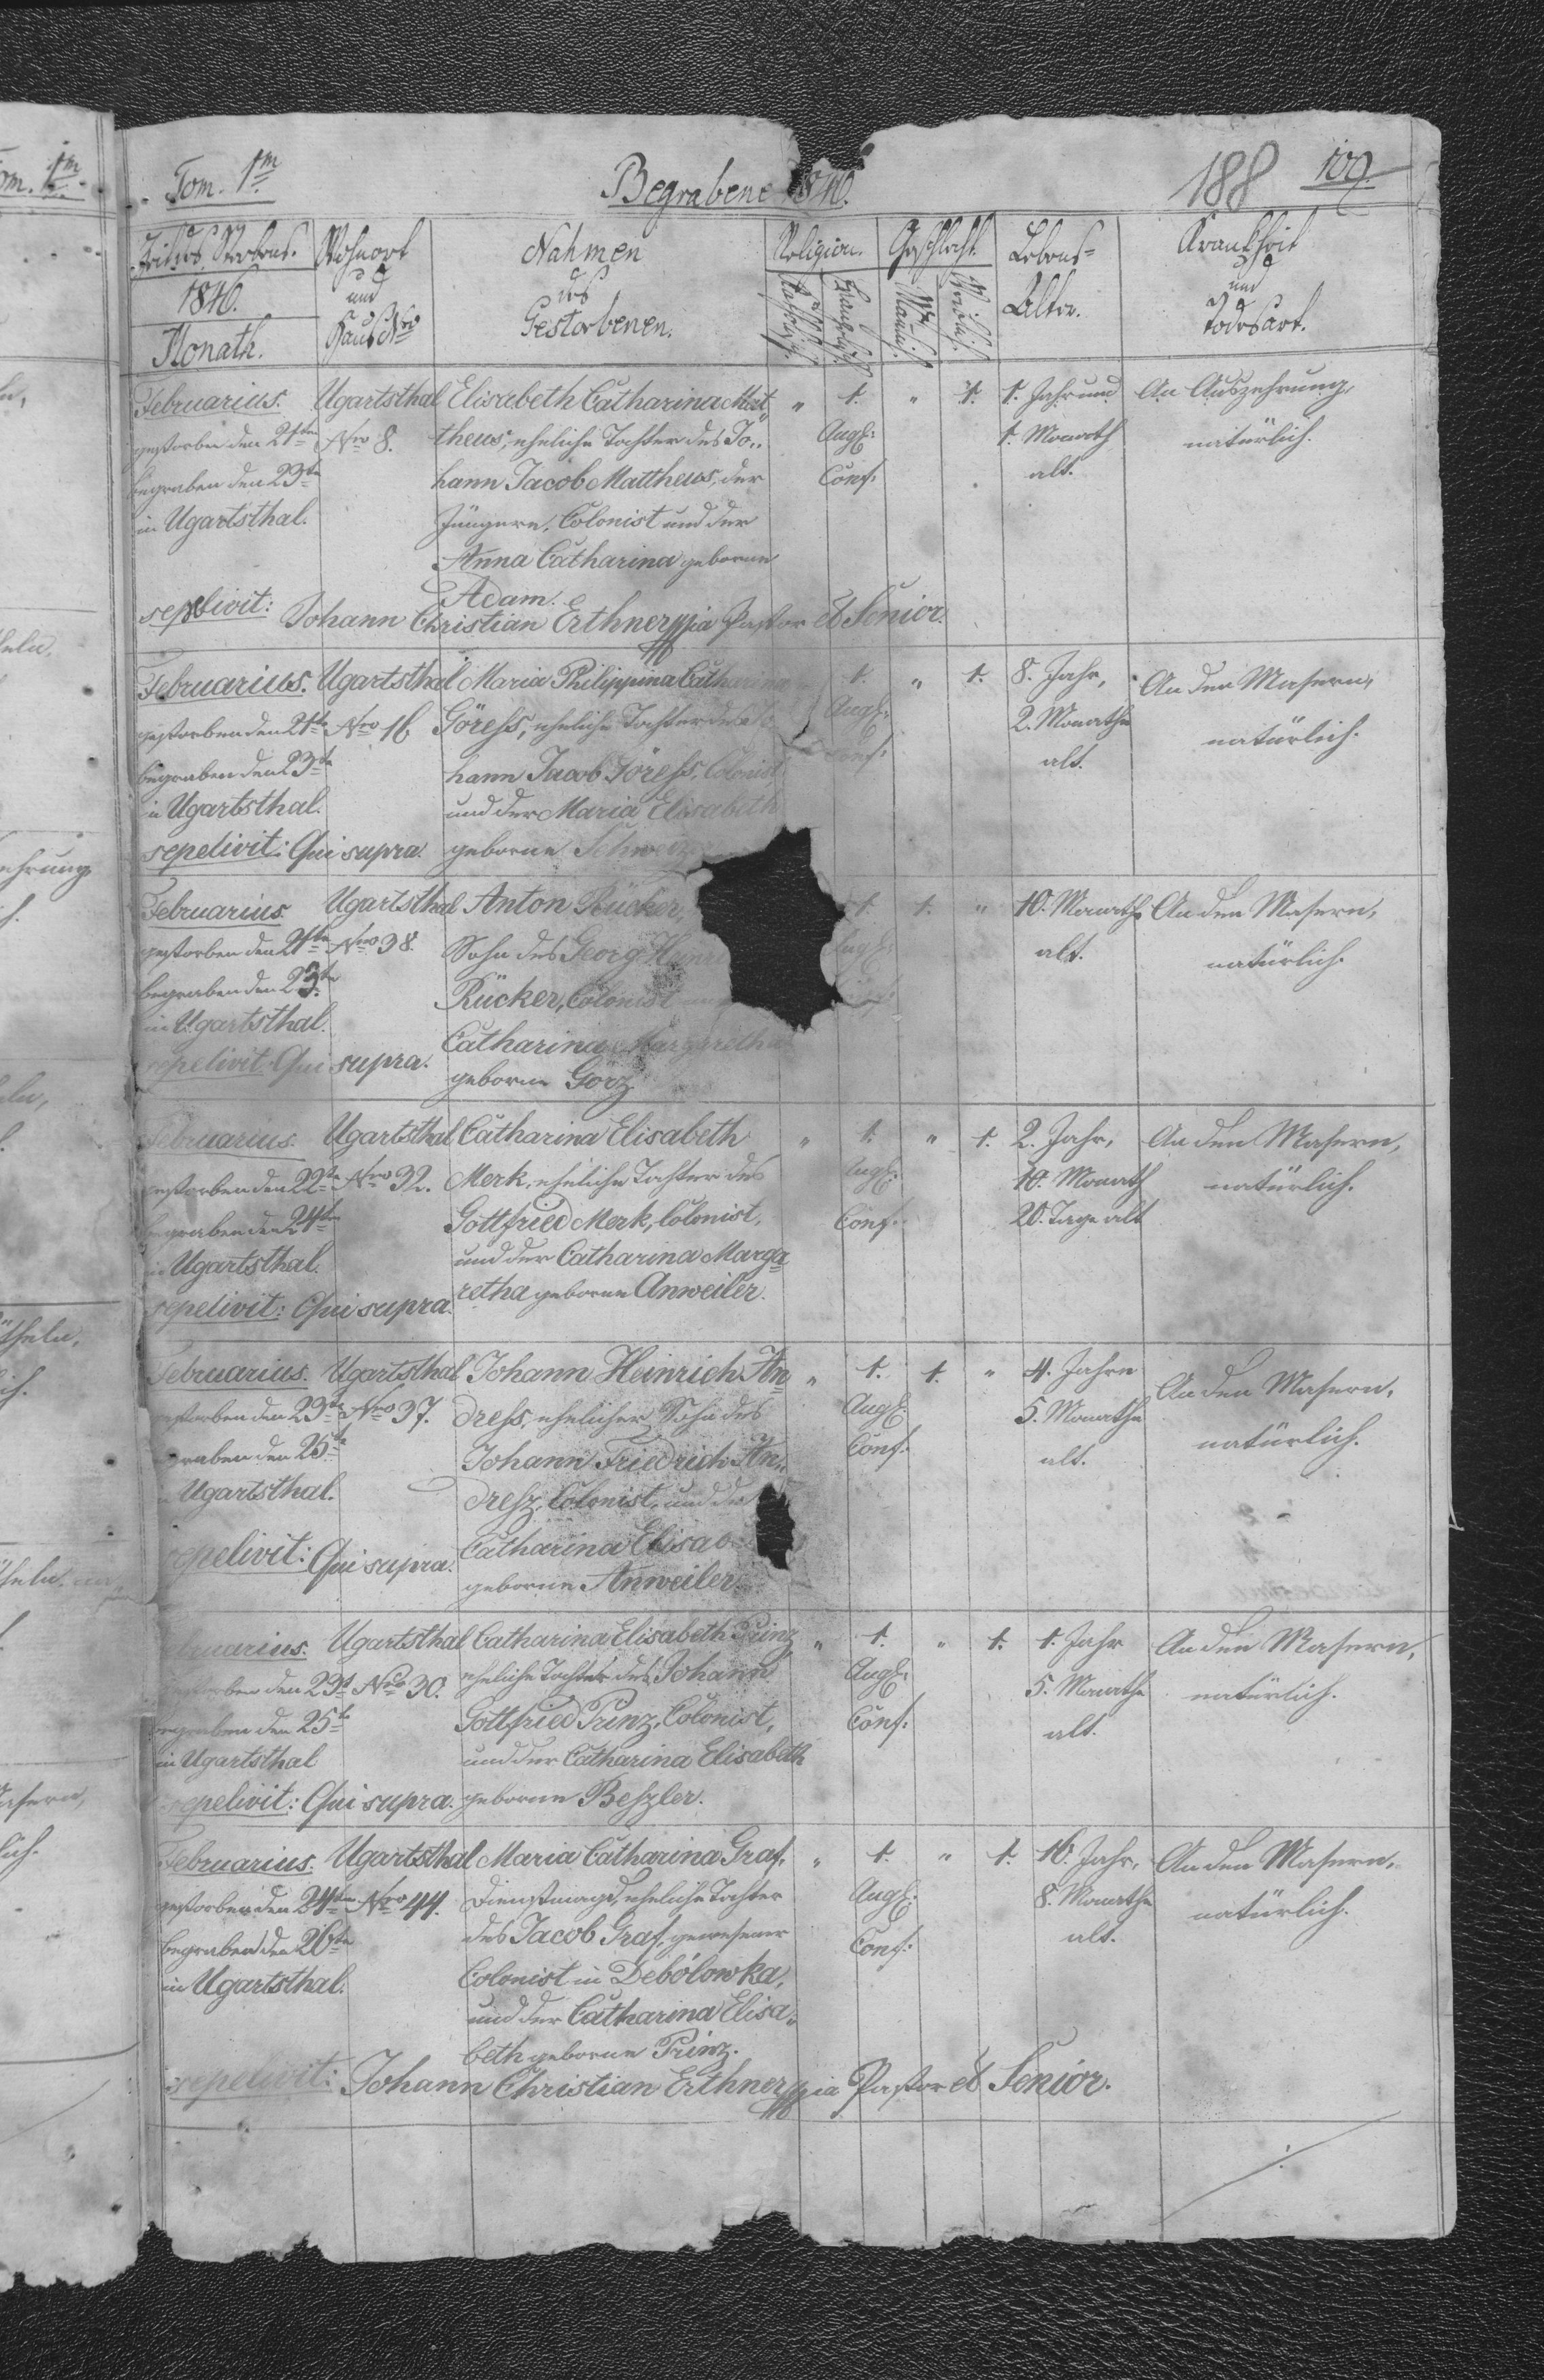 Tom. 1m
Begrabene 1846.
188 109.
Zeit des Sterbens.
1846.
Monath.
Wohnort
und
Haus Nro
Nahmen
des
Gestorbenen.
Religion.
Katholisch.
Evangelisch.
Geschlecht.
Männlich.
Weiblich.
Lebens-
Alter.
Krankheit
und
Todesart.
Februarius. Ugartsthal Elisabeth Catharina Mat„ " 1. " 1. 1. Jahr und An Auszehrung,
gestorben den 21ten Nro 8. theus, eheliche Tochter des Jo„ Augsb: 1. Monath natürlich.
begraben den 23te hann Jacob Mattheus, der Conf: alt.
in Ugartsthal. Jüngere, Colonist und der
Anna Catharina geborne
Adam.
sepelivit: Johann Christian Erthner mpia Pastor et Senior.
Februarius. Ugartsthal Maria Philippina Catharina 1. " 1. 8. Jahr, An den Masern,
gestorben den 21te Nro 16 Göress, eheliche Tochter des Jo Augsb: 2. Monathe natürlich.
begraben den 23te hann Jacob Göress, Colonist Conf: alt.
in Ugartsthal. und der Maria Elisabeth
sepelivit: Qui supra. geborne
Februarius. Ugartsthal Anton Rücker, 1. 1. " 10. Monathe An den Masern,
gestorben den 21te Nro 38. Sohn des Georg Augsb: alt. natürlich.
begraben den 23te Rücker, Colonist
in Ugartsthal. Catharina Margaretha
sepelivit Qui supra. geborne Görz
Februarius. Ugartsthal Catharina Elisabeth " 1. " 1. 2. Jahr, An den Masern,
gestorben den 22te Nro 32. Merk, eheliche Tochter des Augsb: 10. Monath natürlich.
begraben den 24te Gottfried Merk, Colonist, Conf: 20. Tage alt
in Ugartsthal. und der Catharina Marga„
sepelivit: Qui supra. retha geborne Anweiler.
Februarius. Ugartsthal Johann Heinrich An„ " 1. 1. " 4. Jahre An den Masern,
gestorben den 23te Nro 37. dress, ehelicher Sohn des Augsb: 5. Monathe natürlich.
graben den 25te Johann Friedrich An„ Conf: alt.
Ugartsthal. dresz, Colonist, und der
Catharina Elisab
sepelivit: Qui supra. geborne Anweiler.
Februarius. Ugartsthal Catharina Elisabeth Prinz " 1. " 1. 1. Jahr An den Masern,
gestorben den 23t Nro 30. eheliche Tochter des Johann Augsb: 5. Monathe natürlich.
begraben den 25te Gottfried Prinz, Colonist, Conf: alt.
in Ugartsthal und der Catharina Elisabeth
sepelivit: Qui supra. geborne Beszler.
Februarius. Ugartsthal Maria Catharina Graf, " 1. " 1. 16. Jahr, An den Masern,
gestorben den 24te Nro 44. Dienstmagd, eheliche Tochter Augsb: 8. Monathe natürlich.
begraben den 26te des Jacob Graf, gewesener Conf: alt.
in Ugartsthal. Colonist in Debólowka,
und der Catharina Elisa„
beth geborne Prinz.
sepelivit: Johann Christian Erthner mpia Pastor et Senior.